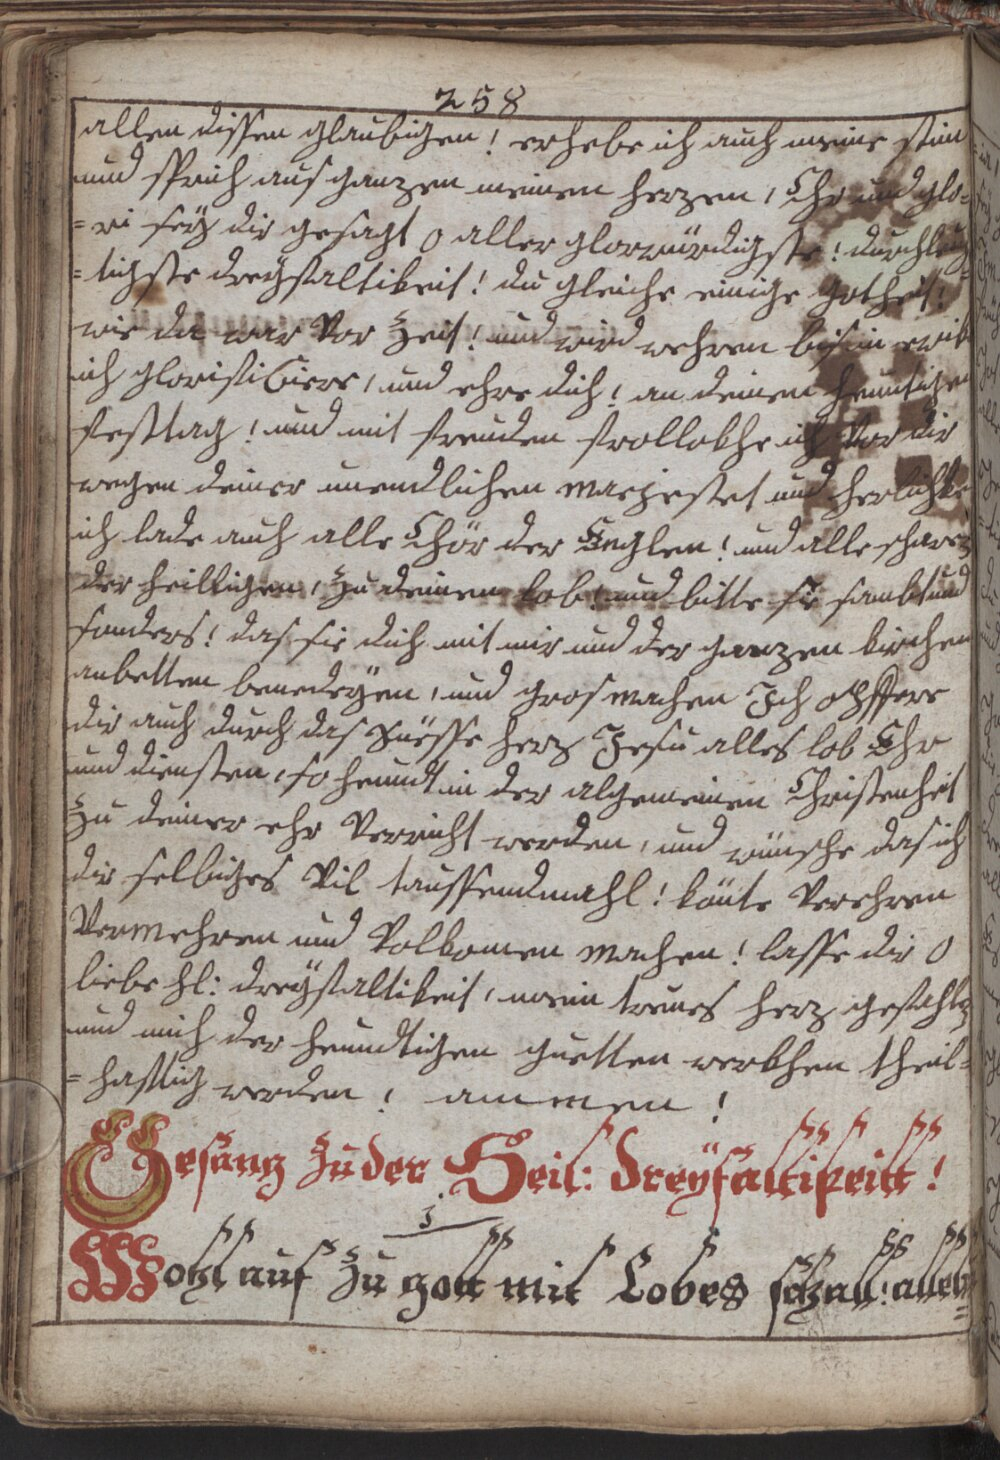 258
allen dissen glaubigen! erhebe ich auch meine stim
und sprich aus ganzen meinen herzen, Ehr und glo-
=ri seÿ dir gesagt o aller glorwürdigste! durchleüch
=tigste dreÿfaltikeit! du gleiche einige gotheit!
wie da war Vor Zeit! und wird wehren bis in ewik
ich glorifiCiere, und ehre dich! an deinem heuntigen
festtag! und mit freuden frollokhe ich Vor dir
wegen deiner unendlichen maejestet und herlichke
ich lade auch alle Chör der Englen! und alle scharen
der heilligen, Zu deinem lob! und bitte sie sambt und
sonders! das sie dich mit mir und der ganzen kirchen
anbetten benedeÿen, und gros machen Ich opffere
dir auch durch das süesse herz Jesu alles lob Ehr
und diensten, so heundt in der algemeinen Christenheit
Zu deiner ehr Verricht werden, und wünsche das ich
dir selbiges Vil taussendmahl! könte Verehren
Vermehren und Volkomen machen! lasse dir O
liebe hl: dreÿfaltikeit, mein treues herz gefahlen
und mich der heundtigen guetten werkhen theil-
=hafftig werden! ammen!
Gesang Zu der Heil: dreÿfaltikeitt!
1
Wohl auf Zu gott mit Lobes schall! allen